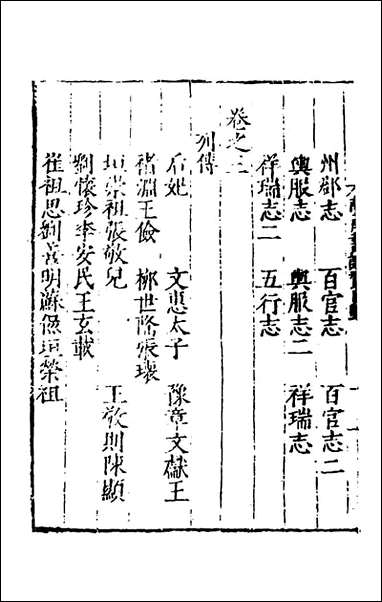 州郡志　百官志　百官志二
輿服志　輿服志二　祥瑞志
祥瑞志二　五行志
卷之三
列傳
后妃　文惠太子　豫章文獻王
褚淵王儉　柳世隆張瓌
垣崇祖張敬兒　王敬則陳顯
劉懷珍李安民王玄載
崔祖思劉善明蘇侃垣榮祖